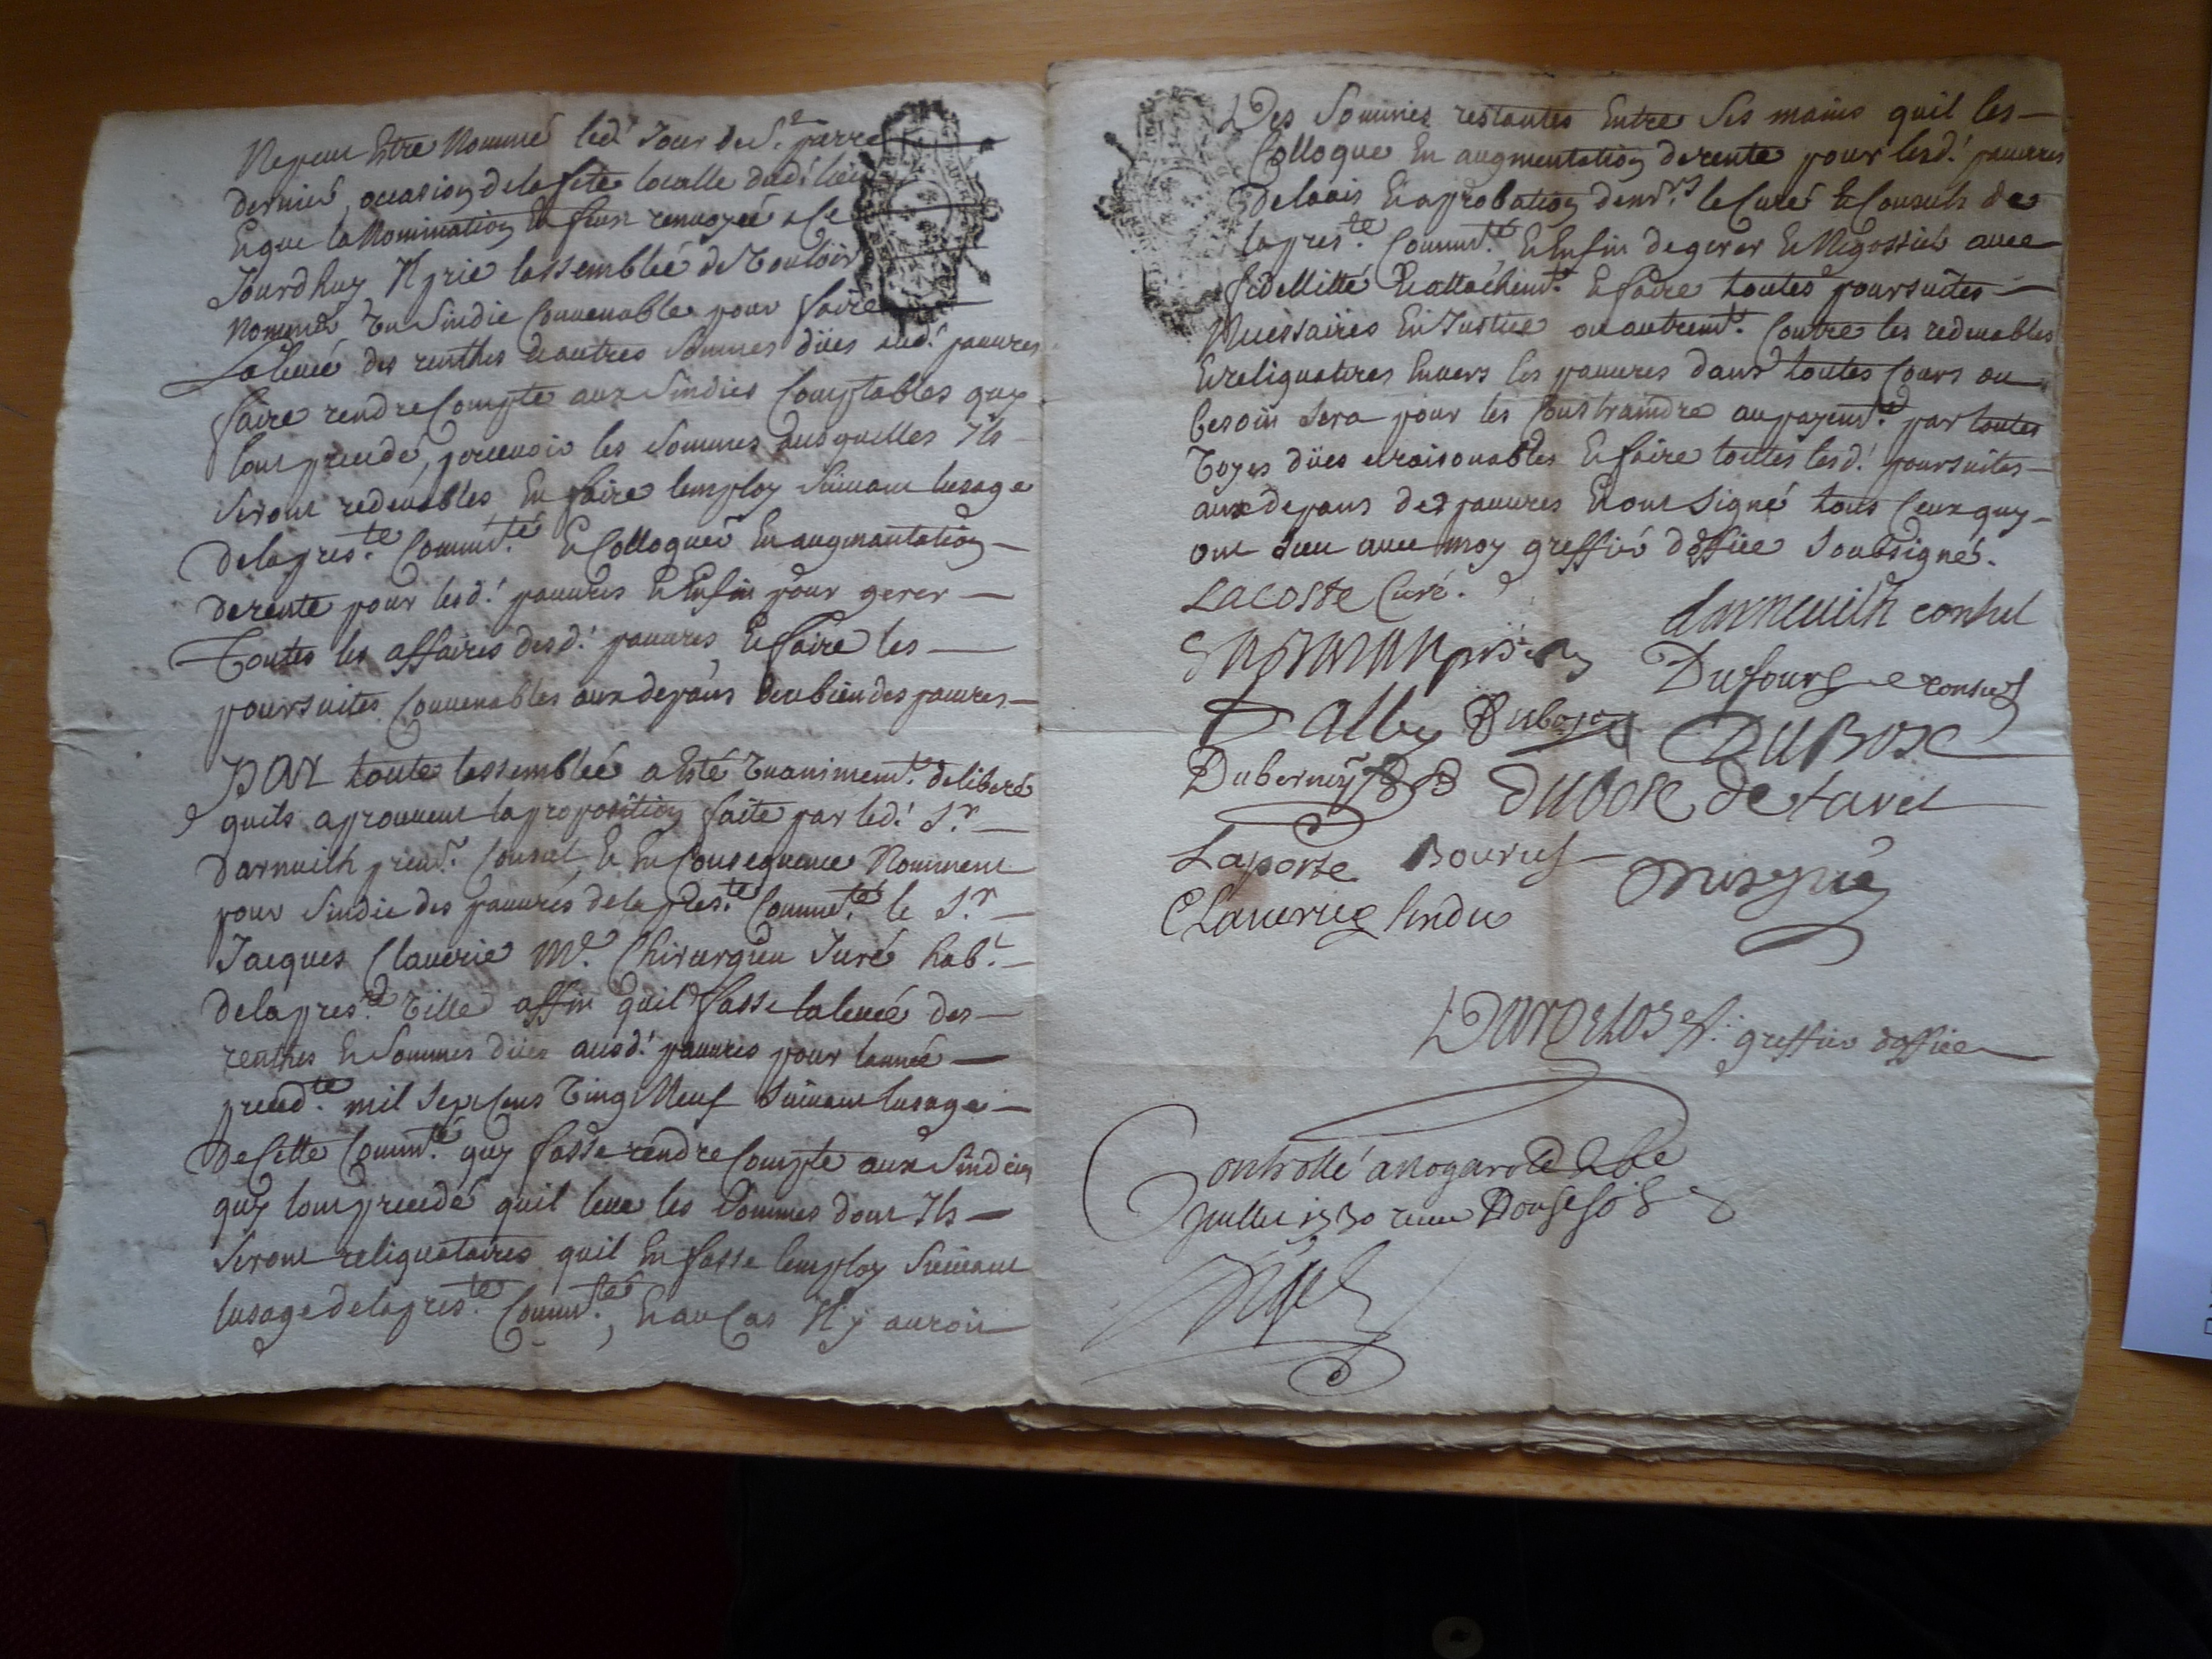 Ne peut Estre Nommé led.t Jour de S.t pierre
dernier, occasion de la fete localle dud.t lieu
Et que la Nomination En feut renvoyée a Ce
Jourdhuy Il prie lassemblée de Vouloir
Nommer Un Sindic Convenable pour faire
La levée des renthes et autres Sommes dües aud.t pauvres
faire rendre Compte aux Sindics Comptables quy
lont precedé, percevoir les Sommes desquelles Ils
Seront redevables En faire lemploy Suivant lusage
de la pres.te Commu.té Et Colloquer En augmantation
de rente pour lesd.t pauvres Et Enfin pour gerer
Toutes les affaires desd.t pauvres, Et faire les
poursuites Convenables aux depans du bien des pauvres
PAR toute lassemblée a Esté Unaniment.t deliberé
quils aprouvent la proposition faite par led.t S.r
Darnuilh prem.r Consul Et En Consequance Nomment
pour Sindic des pauvres de la pres.te Commu.té le S.r
Jacques Claverie M.e Chirurgien Juré hab.t
de la pres.te Ville affin quil fasse la levée des
renthes Et Sommes dües ausd.t pauvres pour lannée
preced.te mil Sept Cens Vingt Neuf Suivant lusage
de Cette Commu.té quy fasse rendre Compte aux Sindics
quy lont precedé quil leve les Sommes dont Ils
Seront reliquataires quil En fasse lemploy Suivant
lusage de la pres.te Commu.té, Et au Cas Il y auroit
Des Sommes restantes Entre Ses mains quil les
Colloque En augmentation de rente pour lesd.t pauvres
de lavis Et aprobation de mr.s le Curé Et Consuls de
la pres.te Commu.té Et Enfin de gerer Et Negossier avec
fidellitté Et attachem.t Et faire toutes poursuites
Necessaires En Justice ou autrem.t Contre les redevables
Et reliquatires Envers les pauvres dans toutes Cours ou
besoin Sera pour les Constraindre au payem.t par toutes
Voyes dües et raisonables Et faire toutes lesd.t poursuites
aux depans des pauvres Et ont Signé tous Ceux quy
ont Sceu avec moy greffier doffice Soubsigné.
Lacoste Curé.
darneuilh consul
Dufourg consul
Dalby Dubosq
DuBosc
Duberney
Dubosc de tavet
Laporte Bourus
Claverie Sindic
greffier doffice
Controllé a Nogaro le
Juillet 1730 receu Douse sols